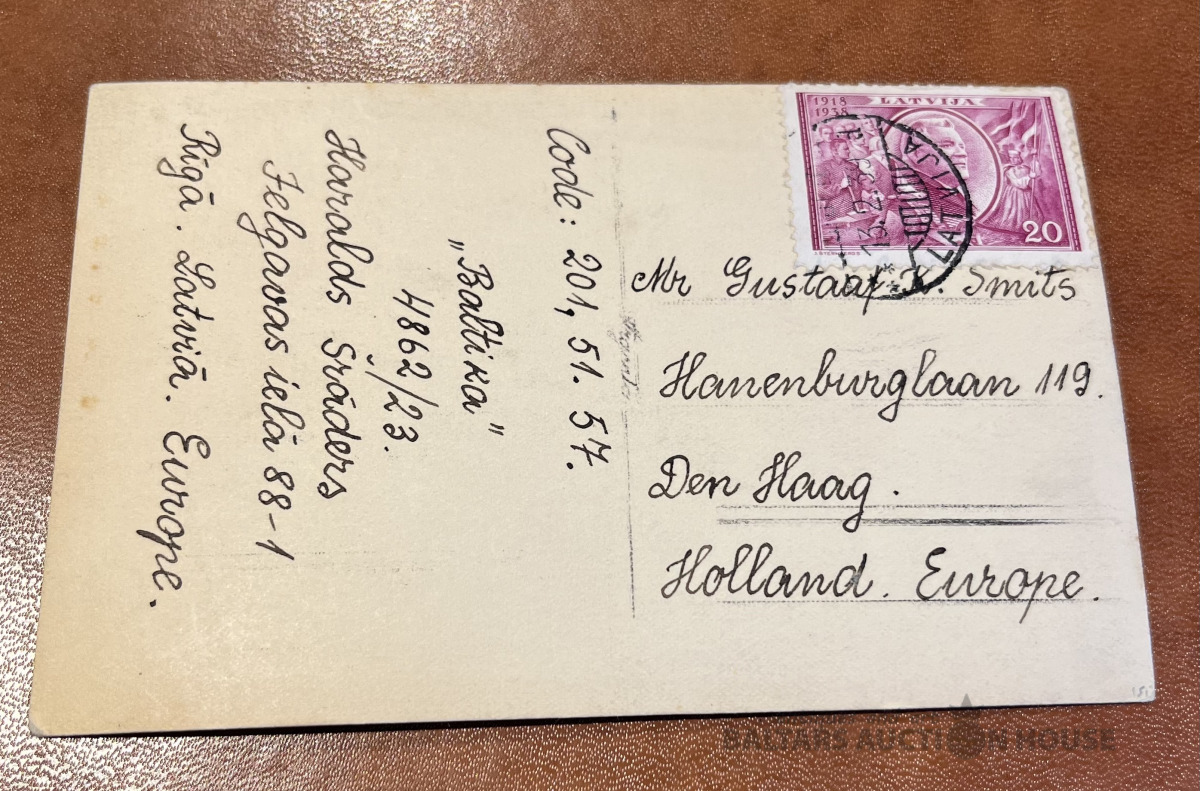 Code: 201, 51. 57.
„Baltika"
4862/23.
Haralds Šrāders
Jelgavas ielā 88-1
Rīgā. Latviā. Europe.
1918
1938
LATVIJA
20
LATVIJA
13.2.39
Mr Gustaaf K. Smits
Hanenburglaan 119.
Den Haag.
Holland. Europe.
BALTARS AUCTION HOUSE